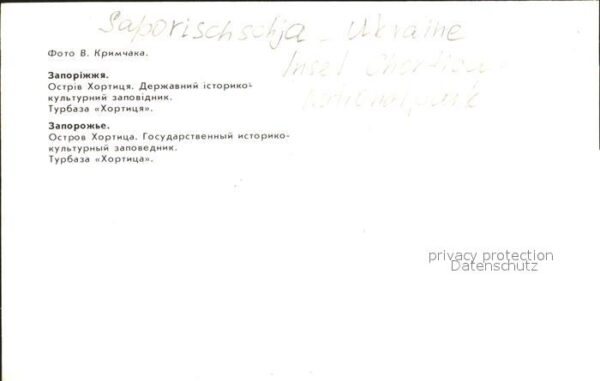 Saporischschja - Ukraine
Insel Chortizja
Nationalpark
Фото В. Кримчака.
Запоріжжя.
Острів Хортиця. Державний історико-
культурний заповідник.
Турбаза «Хортиця».
Запорожье.
Остров Хортица. Государственный историко-
культурный заповедник.
Турбаза «Хортица».
privacy protection
Datenschutz